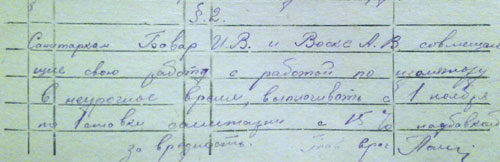 §.2.
Санитаркам Бовар И.В. и Воскс А.В. совмещаю
щие свою работу с работой по
в неурочное время, выплачивать с 1 ноября
по 1 ставки санитарки с 15% надбавкой
за вредность. Глав врач